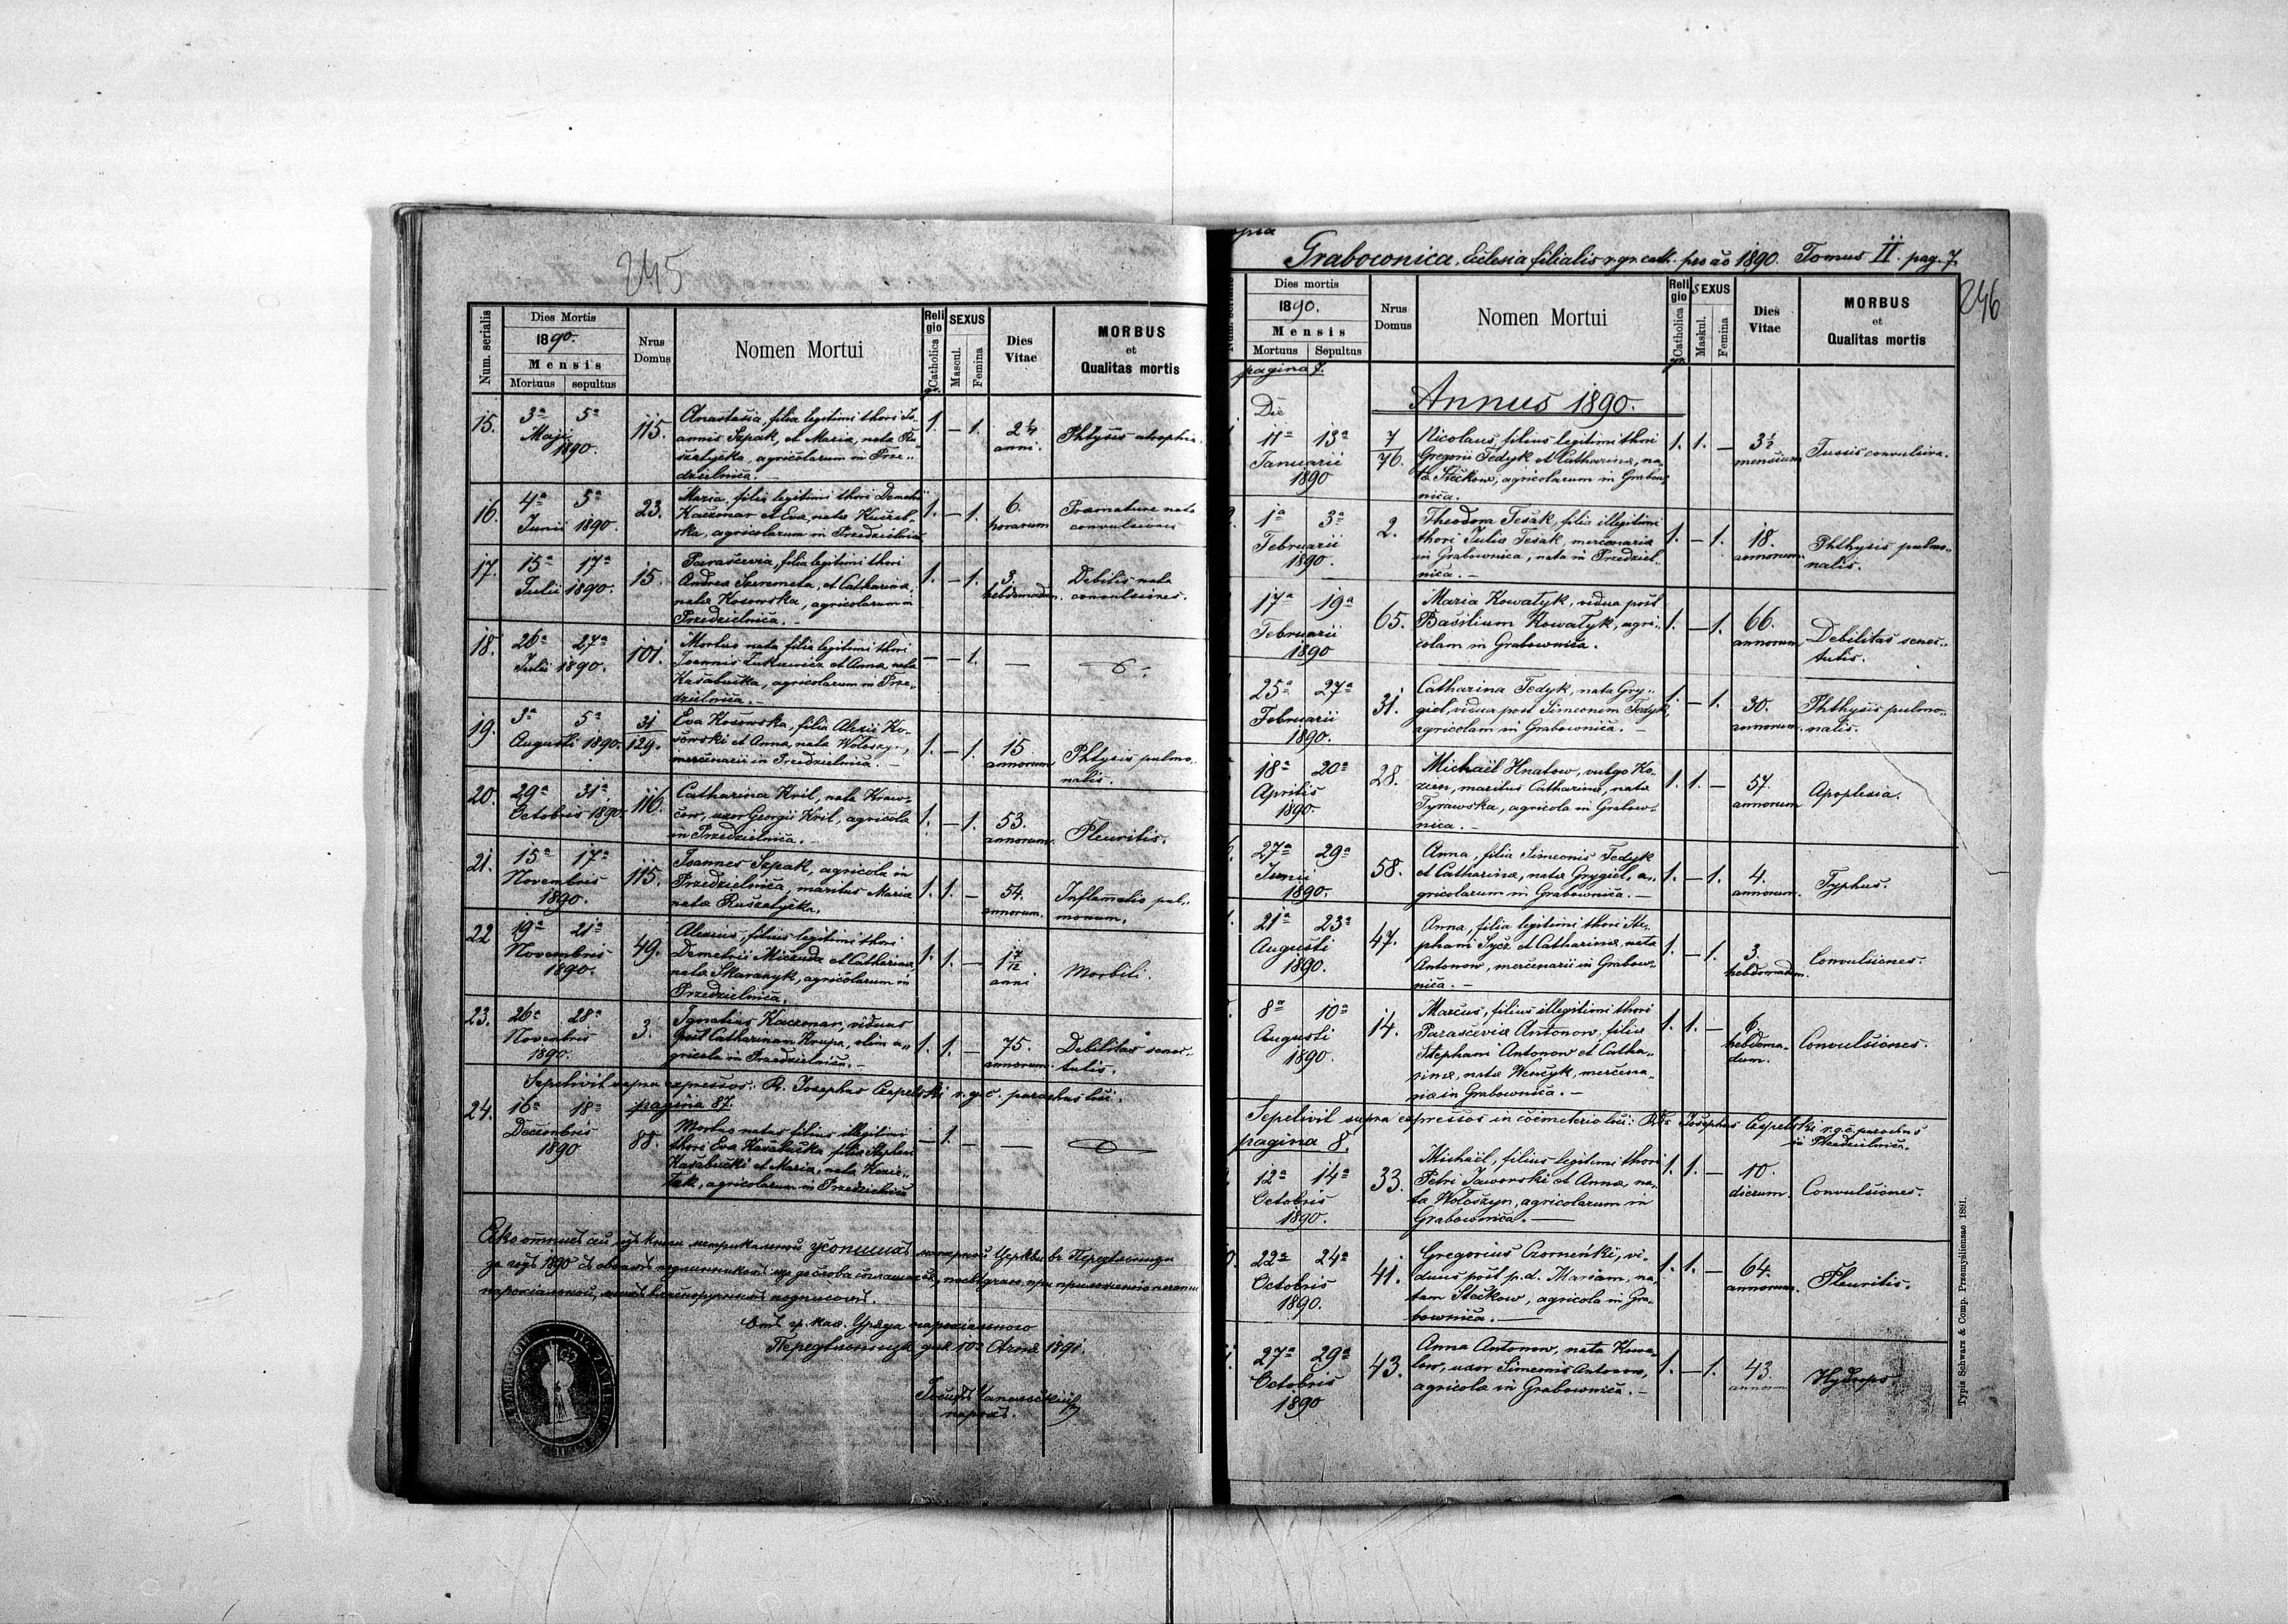 245
Num. serialis
Dies Mortis
1890.
Mensis
Mortuus sepultus
Nrus Domus
Nomen Mortui
Religio
Catholica
SEXUS
Mascul.
Femina
Dies Vitae
MORBUS
et
Qualitas mortis
15. 3a 5a Maji 1890. 115.
Anastasia, filia legitimi thori Jo„
annis Szpak, et Maria, nata Ru
szatyćka, agricolarum in Prze„
dzielnica. —
1. — 1. 2 1/4 anni. Phtysis atrophia.
16. 4a 5a Junii 1890. 23.
Maria, filia legitimi thori Demetrii
Kaczmar et Eva, nata
ska, agricolarum in Przedzielnica
1. — 1. 6. horarum Praemature nata convulsiones
17. 15a 17a Julii 1890. 15.
Parascevia, filia legitimi thori
Andrea Szeremeta, et Catharina,
nata Kosowska, agricolarum in
Przedzielnica. —
1. — 1. 3. hebdomadum. Debilis nata convulsiones.
18. 26a 27a Julii 1890. 101.
Mortuo nata filia legitimi thori
Joannis Łukiewicz et Anna nata
Kasabućka, agricolarum in Prze„
dzielnica. —
— — 1. —
19. 3a 5a Augusti 1890. 31/129.
Eva Kosowska, filia Alexii Ko„
sowski et Anna, nata Wołoszyn,
mercenarii in Przedzielnica. —
1. — 1. 15 annorum Phtysis pulmo„
nalis.
20. 29a 31a Octobris 1890. 116.
Catharina Kril, nata Kraw„
ców, uxor Georgii Kril, agricola
in Przedzielnica. —
1. — 1. 53. annorum. Pleuritis.
21. 15a 17a Novembris 1890. 115.
Joannes Szpak, agricola in
Przedzielnica, maritus Maria
nata Ruszatyćka.
1. 1. — 54. annorum. Inflammatio pul„
monum.
22 19a 21a Novembris 1890. 49.
Alexius, filius legitimi thori
Demetrii Miczuda et Catharina,
nata Skaranyk, agricolarum in
Przedzielnica.
1. 1. — 1 7/12 anni Morbili.
23. 26a 28a Novembris 1890. 3.
Ignatius Kaczmar, viduus
post Catharinam Krupa, olim a„
gricola in Przedzielnica. —
1. 1. — 75. annorum. Debilitas senec„
tutis.
Sepelivit supra expressos: R. Josephus Czapelski r. g. c. parochus loci.
pagina 87.
24. 16a 18a Decembris 1890 88.
Mortuo natus filius illegitimi
thori Eva Kasabućka filia Stephani
Kasabucki et Maria, nata
agricolarum in Przedzielnica
— 1. — —
за годъ 1890
Отъ гр. кат. Уряда парохіяльного
дня 10 1891.
Grabownica, Ecclesia filialis r. gr. cath. pro ao 1890. Tomus II. pag. 7.
246
Dies mortis
1890.
Mensis
Mortuus Sepultus
Nrus Domus
Nomen Mortui
Religio
Catholica
SEXUS
Maskul.
Femina
Dies Vitae
MORBUS
et
Qualitas mortis
pagina 7.
Die
Annus 1890.
11a 13a Januarii 1890 7/76.
Nicolaus, filius legitimi thori
Gregorii Fedyk et Catharina, na„
ta Stećkow, agricolarum in Grabow
nica.
1. 1. — 3 1/2 mensium Tussis convulsiva.
1a 3a Februarii 1890. 2.
Theodora Tesak, filia illegitimi
thori Julia Tesak, mercenaria
in Grabownica, nata in Przedziel„
nica. —
1. — 1. 18. annorum. Phthysis pulmo„
nalis.
17a 19a Februarii 1890 65.
Maria Kowałyk, vidua post
Basilium Kowałyk, agri„
colam in Grabownica.
1. — 1. 66. annorum Debilitas senec„
tutis.
25a 27a Februarii 1890. 31.
Catharina Fedyk, nata Gry„
giel, vidua post Simeonem Fedyk,
agricolam in Grabownica. —
1. — 1. 30. annorum. Phthysis pulmo„
nalis.
18a 20a Aprilis 1890. 28.
Michaël Hnatow, vulgo Ko„
zien, maritus Catharina, nata
Tyrawska, agricola in Grabow„
nica. —
1. 1. — 57. annorum Apoplexia.
27a 29a Junii 1890. 58.
Anna, filia Simeonis Fedyk
et Catharina, nata Grygiel, a„
gricolarum in Grabownica. —
1. — 1. 4. annorum. Typhus.
21a 23a Augusti 1890. 47.
Anna, filia legitimi thori Ste„
phani Sycz et Catharina, nata
Antonow, mercenarii in Grabow„
nica. —
1. — 1. 3. hebdomadum. Convulsiones.
8a 10a Augusti 1890. 14.
Marcus, filius illegitimi thori
Parascevia Antonow, filia
Stephani Antonow et Catha„
rina, nata Wenćyk, mercena„
ria in Grabownica. —
1. 1. — 6. hebdoma„
dum. Convulsiones.
Sepelivit supra expressos in coemeterio loci: Rds Josephus Czapelski r. g. c. parochus
in Przedzielnica.
pagina 8.
12a 14a Octobris 1890. 33.
Michaël, filius legitimi thori
Petri Jaworski et Anna, na„
ta Wołoszyn, agricolarum in
Grabownica. —
1. 1. — 10. dierum. Convulsiones.
22a 24a Octobris 1890. 41.
Gregorius Czorneński, vi„
duus post p. d. Mariam, na„
tam Stećkow, agricola in Gra„
bownica. —
1. 1. — 64. annorum. Pleuritis.
27a 29a Octobris 1890 43.
Anna Antonow, nata Kowa„
low, uxor Simeonis Antonow,
agricola in Grabownica. —
1. — 1. 43. annorum Hydrops.
Typis Schwarz & Comp. Przemysliensae 1891.